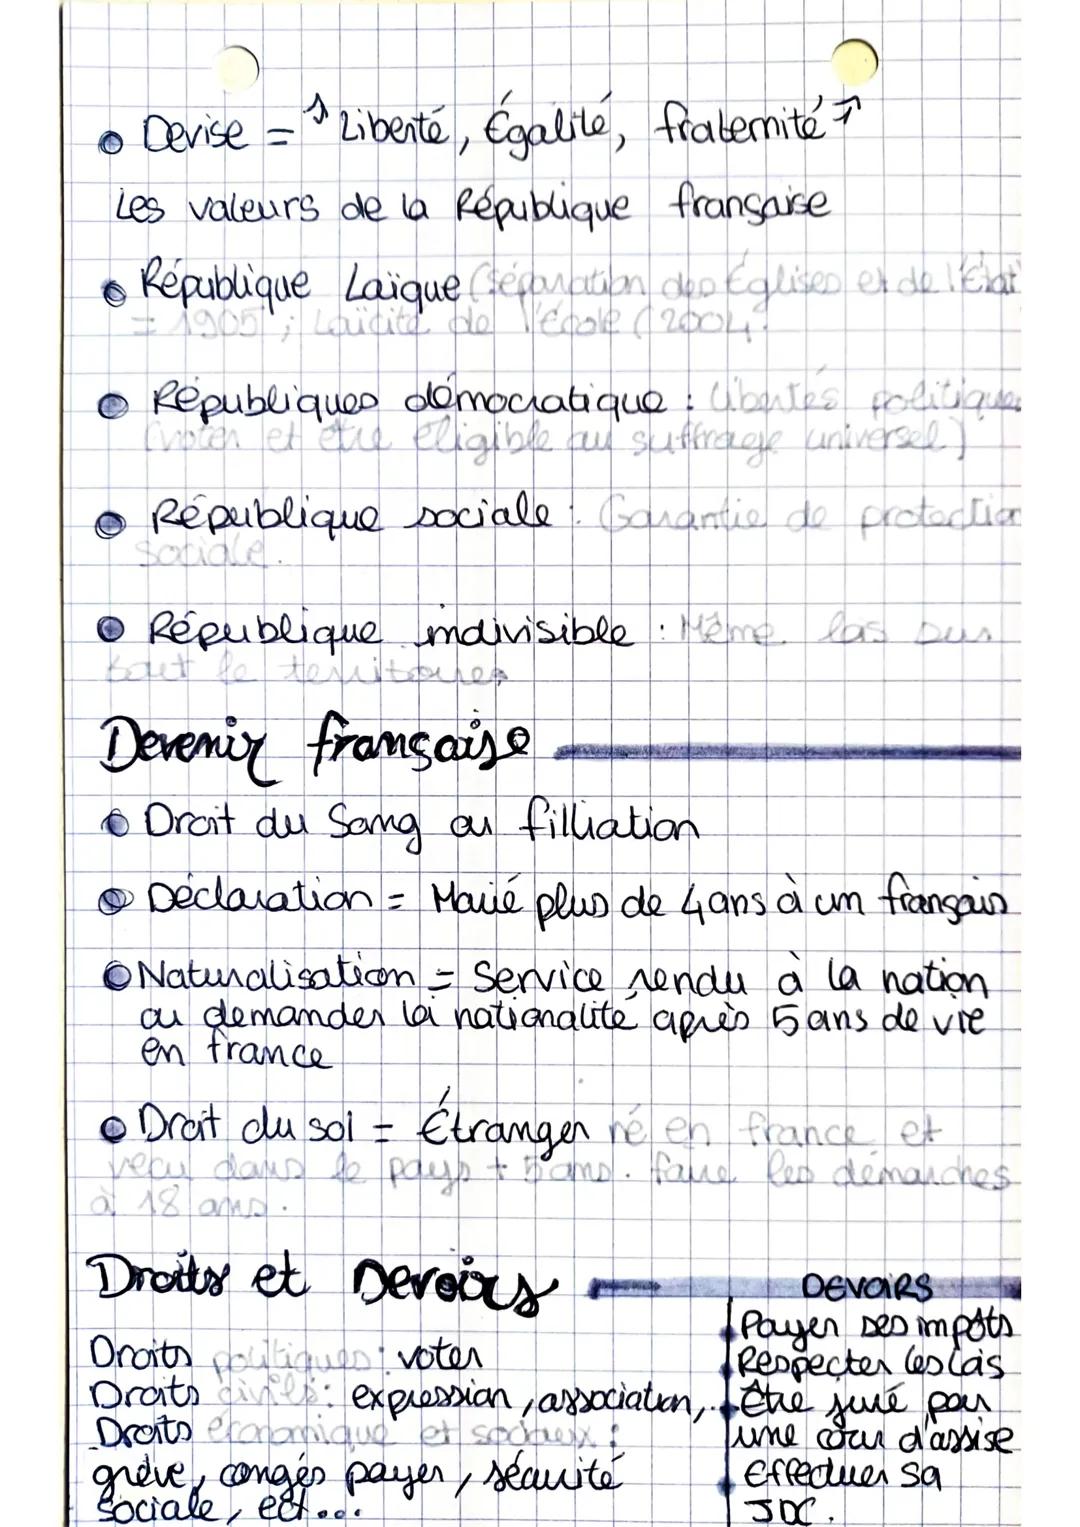 Devise = "Liberté, Égalité, fraternité"
Les valeurs de la République française
République Laïque (séparation des Églises et de l'État
= 1905 ; Laïcité de l'école (2004.
Républiques démocratique : libertés politiques
(voter et être éligible au suffrage universel)
République sociale : Garantie de protection
sociale.
République indivisible : Même lois sur
tout le territoires
Devenir française
Droit du Sang ou filliation
Déclaration = Marié plus de 4 ans à un français
Naturalisation = Service rendu à la nation
ou demander la nationalité après 5 ans de vie
en france
Droit du sol = Étranger né en france et
vécu dans le pays + 5 ans. faire les démarches
à 18 ans.
Droits et Devoirs
Droits politiques : voter
Droits civils : expression, association,
Droits économique et sociaux :
grève, congés payer, sécurité
sociale, ect...
DEVOIRS
Payer ses impôts
Respecter les lois
Être juré pour
une cour d'assise
Effectuer sa
JDC.